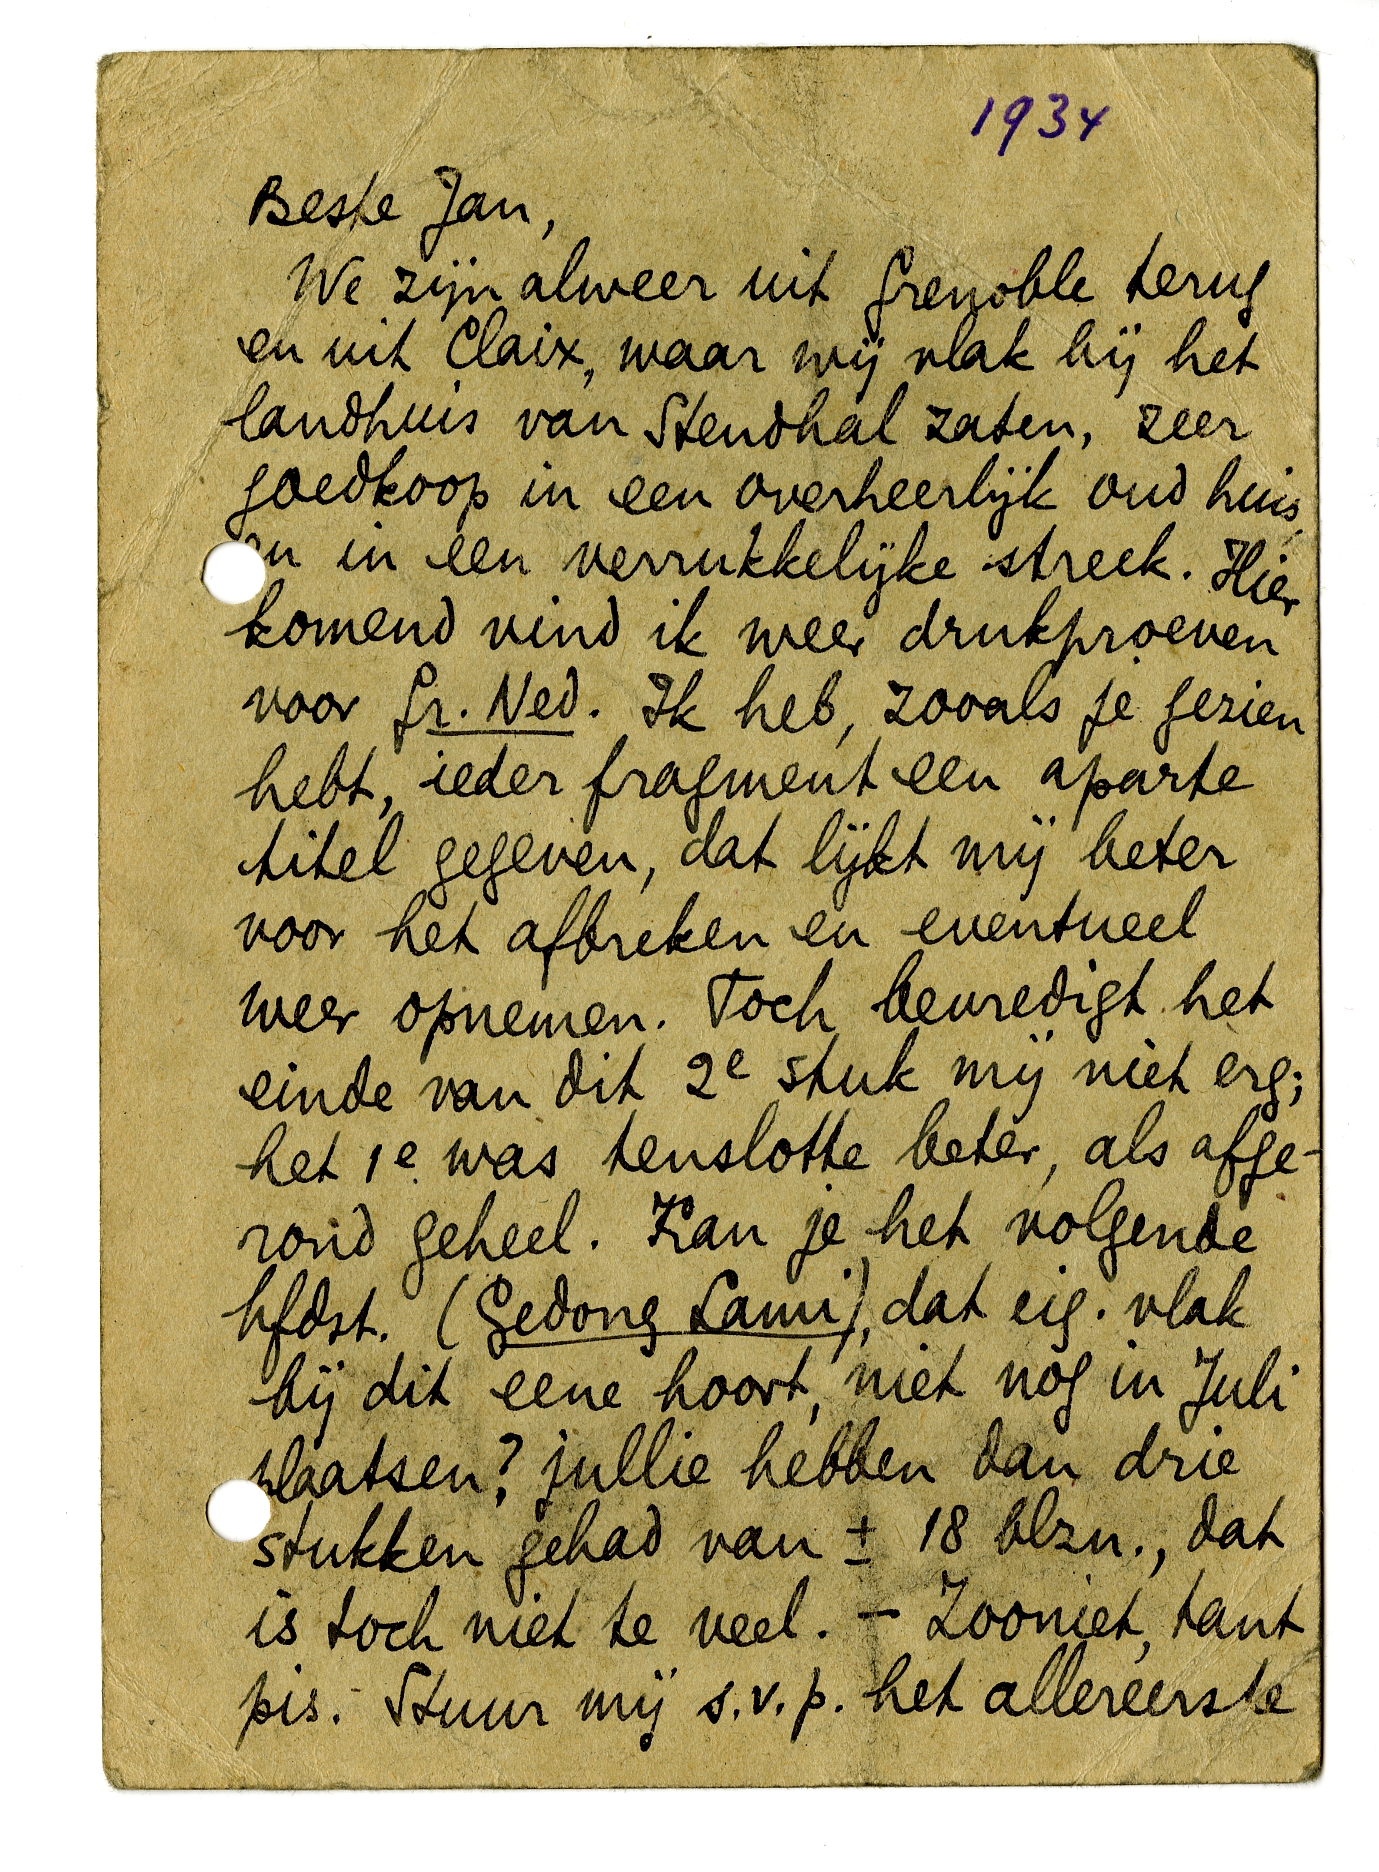 1934
Beste Jan,
We zijn alweer uit Grenoble terug
en uit Claix, waar wij vlak bij het
landhuis van Stendhal zaten, zeer
goedkoop in een overheerlijk oud huis,
en in een verrukkelijke streek. Hier
komend vind ik weer drukproeven
voor Gr. Ned. Ik heb, zooals je gezien
hebt, ieder fragment een aparte
titel gegeven, dat lijkt mij beter
voor het afbreken en eventueel
weer opnemen. Toch bevredigt het
einde van dit 2e stuk mij niet erg;
het 1e was tenslotte beter, als afge-
rond geheel. Kan je het volgende
hfdst. (Gedong Lami), dat eig. vlak
bij dit eene hoort, niet nog in Juli
plaatsen? jullie hebben dan drie
stukken gehad van ± 18 blzn., dat
is toch niet te veel. – Zooniet, tant
pis. – Stuur mij s.v.p. het allereerste